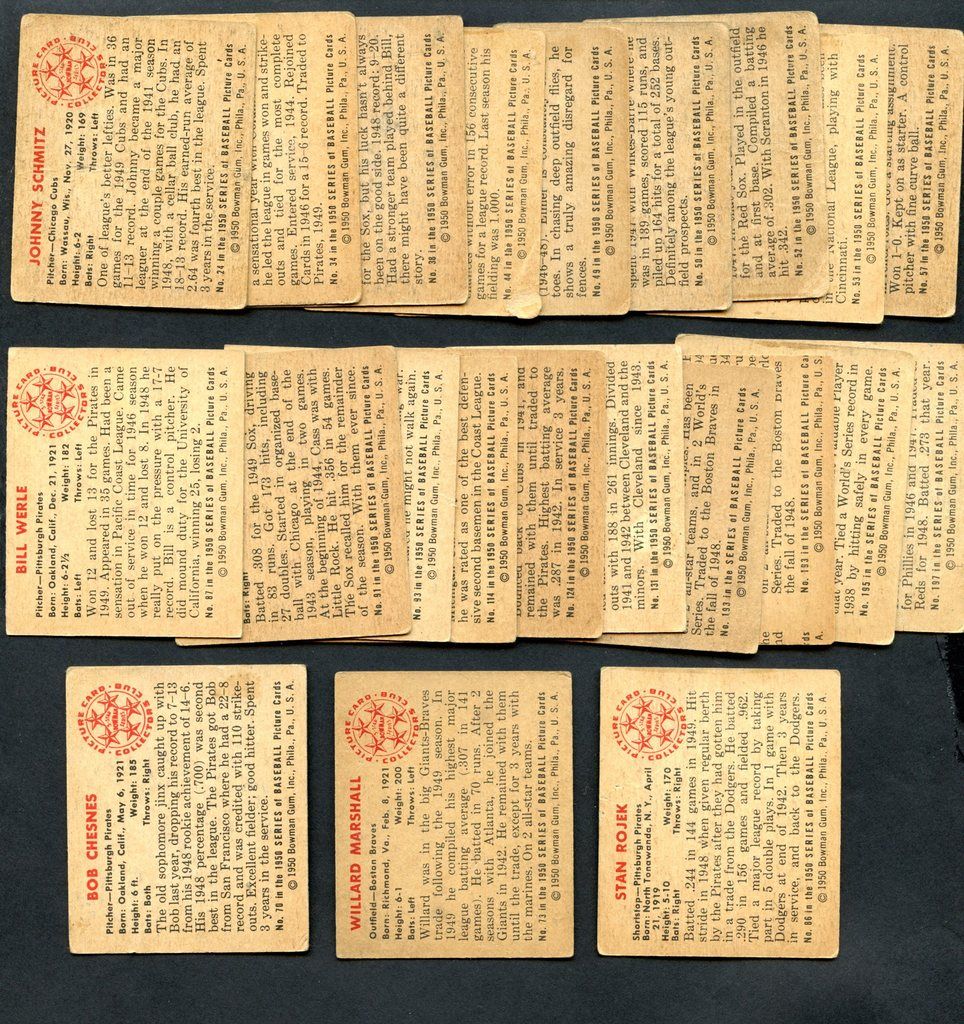 JOHNNY SCHMITZ
Pitcher—Chicago Cubs
Born: Wassau, Wis., Nov. 27, 1920
Height: 6-2 Weight: 169
Bats: Right Throws: Left
PICTURE CARD COLLECTORS CLUB
One of league's better lefties. Was in 36
games for the 1949 Cubs and had an
11-13 record. Johnny became a major-
leaguer at the end of the 1941 season
winning a couple games for the Cubs. In
1948, with a cellar ball club, he had an
18-13 record. His earned-run average of
2.64 was fourth best in the league. Spent
3 years in the service.
No. 24 in the 1950 SERIES of BASEBALL Picture Cards
© 1950 Bowman Gum, Inc., Phila., Pa., U. S. A.
a sensational year when
he led the league in games won and strike-
outs and tied for the most complete
games. Entered service, 1944. Rejoined
Cards in 1946 for a 15-6 record. Traded to
Pirates, 1949.
No. 34 in the 1950 SERIES of BASEBALL Picture Cards
© 1950 Bowman Gum, Inc., Phila., Pa., U. S. A.
for the Sox, but his luck hasn't always
been on the good side. 1948 record: 9-20.
Had a stronger team played behind Bill,
there might have been quite a different
story.
No. 38 in the 1950 SERIES of BASEBALL Picture Cards
© 1950 Bowman Gum, Inc., Phila., Pa., U. S. A.
chances without error in 156 consecutive
games for a league record. Last season his
fielding was 1.000.
No. 44 in the 1950 SERIES of BASEBALL Picture Cards
© 1950 Bowman Gum, Inc., Phila., Pa., U. S. A.
(1946-48). Elmer is constantly on his
toes. In chasing deep outfield flies, he
shows a truly amazing disregard for
fences.
No. 49 in the 1950 SERIES of BASEBALL Picture Cards
© 1950 Bowman Gum, Inc., Phila., Pa., U. S. A.
spent 1947 with Wilkes-Barre where he
was in 139 games, scored 115 runs, and
piled up 164 hits for a total of 252 bases.
Definitely among the league's young out-
field prospects.
No. 50 in the 1950 SERIES of BASEBALL Picture Cards
© 1950 Bowman Gum, Inc., Phila., Pa., U. S. A.
for the Red Sox. Played in the outfield
and at first base. Compiled a batting
average of .302. With Scranton in 1946 he
hit .342.
No. 52 in the 1950 SERIES of BASEBALL Picture Cards
© 1950 Bowman Gum, Inc., Phila., Pa., U. S. A.
in the National League, playing with
Cincinnati.
No. 53 in the 1950 SERIES of BASEBALL Picture Cards
© 1950 Bowman Gum, Inc., Phila., Pa., U. S. A.
Got a starting assignment.
Won 1-0. Kept on as starter. A control
pitcher with fine curve ball.
No. 57 in the 1950 SERIES of BASEBALL Picture Cards
© 1950 Bowman Gum, Inc., Phila., Pa., U. S. A.
BILL WERLE
Pitcher—Pittsburgh Pirates
Born: Oakland, Calif., Dec. 21, 1921
Height: 6-2½ Weight: 182
Bats: Left Throws: Left
PICTURE CARD COLLECTORS CLUB
Won 12 and lost 13 for the Pirates in
1949. Appeared in 35 games. Had been a
sensation in Pacific Coast League. Came
out of service in time for 1946 season
when he won 12 and lost 8. In 1948 he
really put on the pressure with a 17-7
record. Bill is a control pitcher. He
did mound duty for the University of
California, winning 25, losing 2.
No. 87 in the 1950 SERIES of BASEBALL Picture Cards
© 1950 Bowman Gum, Inc., Phila., Pa., U. S. A.
Bats: Right
Batted .308 for the 1949 Sox, driving
in 83 runs. Got 173 hits, including
27 doubles. Started in organized base-
ball with Chicago at the end of the
1943 season, playing in two games.
At the beginning of 1944, Cass was with
Little Rock. He hit .356 in 54 games.
The Sox recalled him for the remainder
of the season. With them ever since.
No. 91 in the 1950 SERIES of BASEBALL Picture Cards
© 1950 Bowman Gum, Inc., Phila., Pa., U. S. A.
he might not walk again.
No. 93 in the 1950 SERIES of BASEBALL Picture Cards
© 1950 Bowman Gum, Inc., Phila., Pa., U. S. A.
he was rated as one of the best defen-
sive second basemen in the Coast League.
No. 114 in the 1950 SERIES of BASEBALL Picture Cards
© 1950 Bowman Gum, Inc., Phila., Pa., U. S. A.
Bounced back to Cubs in 1941 and
remained with them until traded to
the Pirates. Highest batting average
was .287 in 1942. In service 3 years.
No. 124 in the 1950 SERIES of BASEBALL Picture Cards
© 1950 Bowman Gum, Inc., Phila., Pa., U. S. A.
outs with 188 in 261 innings. Divided
1941 and 1942 between Cleveland and the
minors. With Cleveland since 1943.
No. 131 in the 1950 SERIES of BASEBALL Picture Cards
© 1950 Bowman Gum, Inc., Phila., Pa., U. S. A.
all-star teams, and in 2 World's
Series. Traded to the Boston Braves in
the fall of 1948.
No. 193 in the SERIES of BASEBALL Picture Cards
© 1950 Bowman Gum, Inc., Phila., Pa., U. S. A.
Series. Traded to the Boston Braves
the fall of 1948.
No. 193 in the 1950 SERIES of BASEBALL Picture Cards
© 1950 Bowman Gum, Inc., Phila., Pa., U. S. A.
that year. Tied a World's Series record in
1938 by hitting safely in every game.
No. 195 in the 1950 SERIES of BASEBALL Picture Cards
© 1950 Bowman Gum, Inc., Phila., Pa., U. S. A.
for Phillies in 1946 and 1947. Traded to
Reds for 1948. Batted .273 that year.
No. 197 in the 1950 SERIES of BASEBALL Picture Cards
© 1950 Bowman Gum, Inc., Phila., Pa., U. S. A.
BOB CHESNES
Pitcher—Pittsburgh Pirates
Born: Oakland, Calif., May 6, 1921
Height: 6 ft. Weight: 185
Bats: Both Throws: Right
PICTURE CARD COLLECTORS CLUB
The old sophomore jinx caught up with
Bob last year, dropping his record to 7-13
from his 1948 rookie achievement of 14-6.
His 1948 percentage (.700) was second
best in the league. The Pirates got Bob
from San Francisco where he had a 22-8
record and was credited with 110 strike-
outs. Excellent fielder; good hitter. Spent
3 years in the service.
No. 70 in the 1950 SERIES of BASEBALL Picture Cards
© 1950 Bowman Gum, Inc., Phila., Pa., U. S. A.
WILLARD MARSHALL
Outfield—Boston Braves
Born: Richmond, Va., Feb. 8, 1921
Height: 6-1 Weight: 200
Bats: Left Throws: Left
PICTURE CARD COLLECTORS CLUB
Willard was in the big Giants-Braves
trade following the 1949 season. In
1949 he compiled his highest major
league batting average (.307 in 141
games). He batted in 70 runs. After 2
seasons with Atlanta, he joined the
Giants in 1942. He remained with them
until the trade, except for 3 years with
the marines. On 2 all-star teams.
No. 73 in the 1950 SERIES of BASEBALL Picture Cards
© 1950 Bowman Gum, Inc., Phila., Pa., U. S. A.
STAN ROJEK
Shortstop—Pittsburgh Pirates
Born: North Tonawanda, N. Y., April
21, 1919
Height: 5-10 Weight: 170
Bats: Right Throws: Right
PICTURE CARD COLLECTORS CLUB
Batted .244 in 144 games in 1949. Hit
stride in 1948 when given regular berth
by the Pirates after they had gotten him
in a trade from the Dodgers. He batted
.290 in 156 games and fielded .962.
Tied a major league record by taking
part in 5 double plays. In 1 game with
Dodgers at end of 1942. Then 3 years
in service, and back to the Dodgers.
No. 86 in the 1950 SERIES of BASEBALL Picture Cards
© 1950 Bowman Gum, Inc., Phila., Pa., U. S. A.